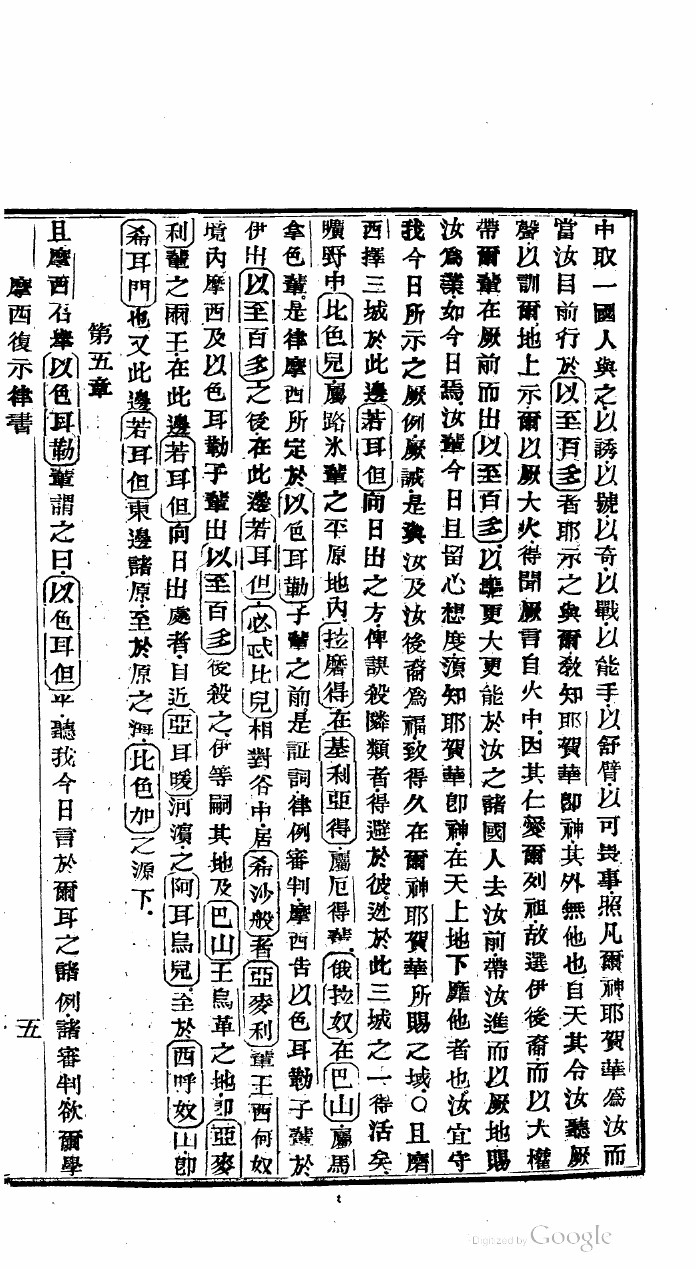 中取一國人與之以誘以號以奇以戰以能手以舒臂以可畏事照凡爾神耶賀華爲汝而
當汝目前行於以至百多者耶示之與爾敎知耶賀華卽神其外無他也自天其令汝聽厥
聲以訓爾地上示爾以厥大火得聞厥言自火中因其仁愛爾列祖故選伊後裔而以大權
帶爾輩在厥前而出以至百多以攆更大更能於汝之諸國人去汝前帶汝進而以厥地賜
汝爲業如今日焉汝輩今日且留心想度須知耶賀華卽神在天上地下靡他者也汝宜守
我今日所示之厥例厥誡是與汝及汝後裔爲福致得久在爾神耶賀華所賜之域〇且磨
西擇三城於此邊若耳但向日出之方俾誤殺隣類者得避於彼逃於此三城之一得活矣
曠野中比色兒屬路氷輩之平原地內拉磨得在基利亞得屬厄得輩俄拉奴在巴山屬馬
拿色輩是律摩西所定於以色耳勒子輩之前是証詞律例審判摩西吿以色耳勒子輩於
伊出以至百多之後在此邊若耳但必武比兒相對谷中居希沙般者亞麥利輩王西何奴
境內摩西及以色耳勒子輩出以至百多後殺之伊等嗣其地及巴山王烏革之地卽亞麥
利輩之兩王在此邊若耳但向日出處者自近亞耳暖河濱之阿耳烏兒至於西呼奴山卽
希耳門也又此邊若耳但東邊諸原至於原之海比色加之源下
第五章
且摩西召攆以色耳勒輩謂之曰以色耳但乎聽我今日言於爾耳之諸例諸審判欲爾學
摩西復示律書
五
Digitized by Google